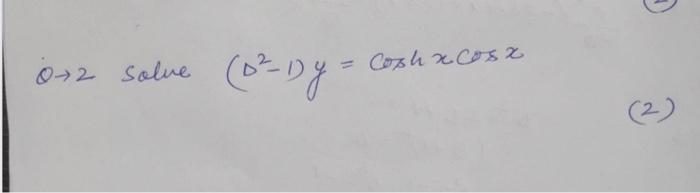 Q→2 Solve (D²-1)y = Coshx Cosx
(2)